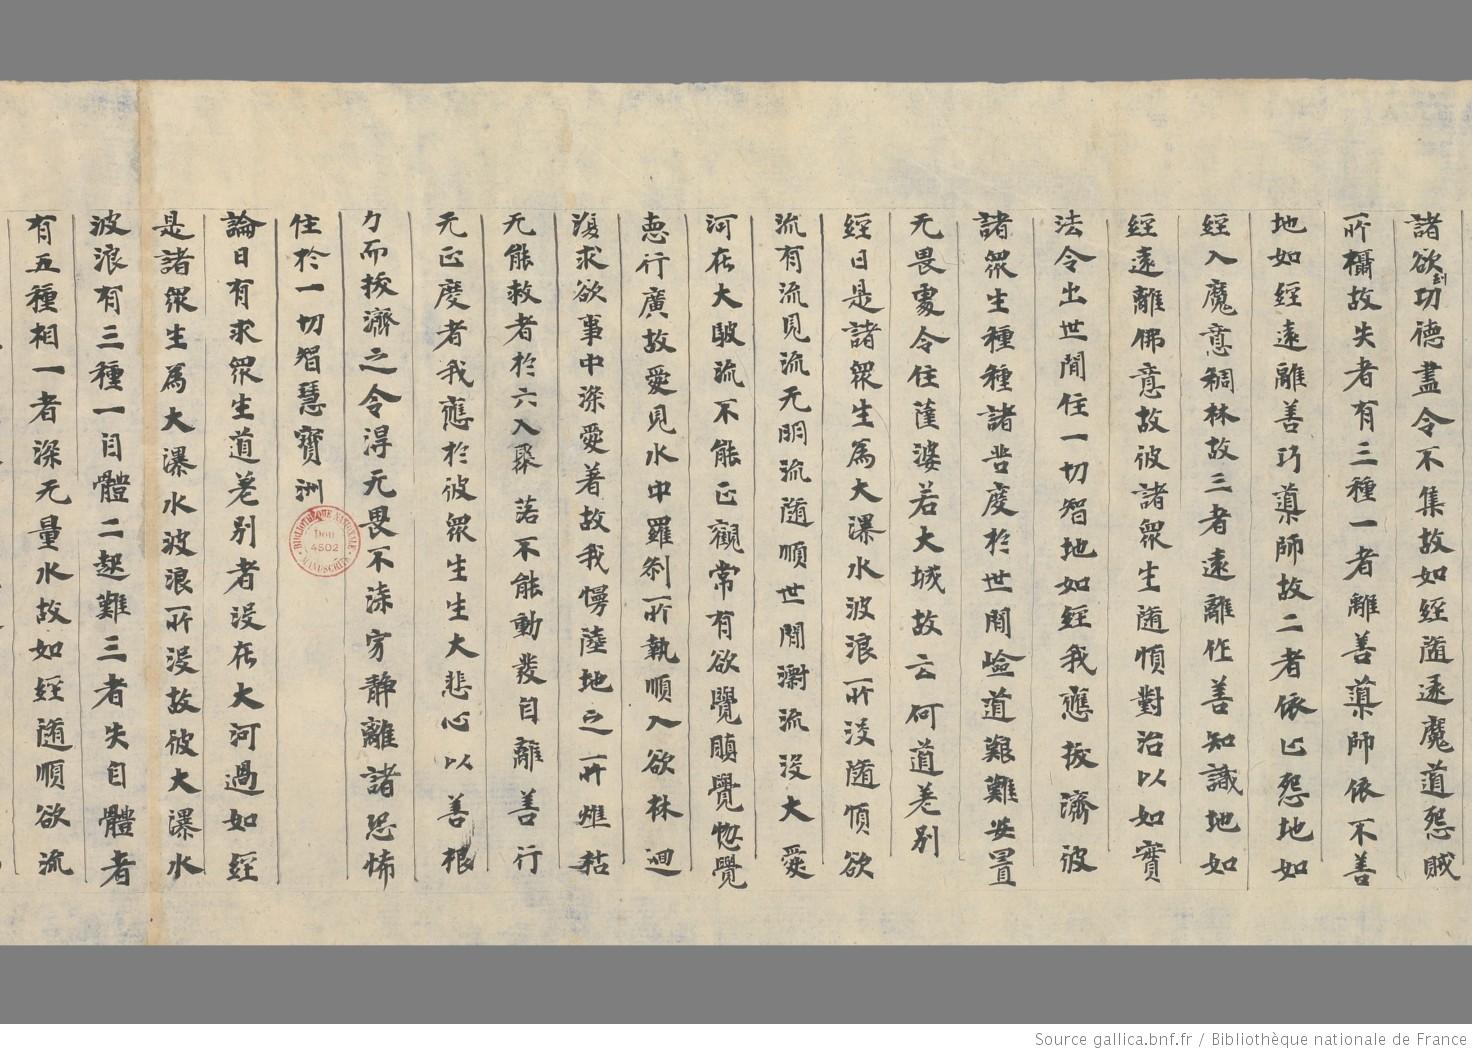 諸欲到功德盡令不集故如經隨逐魔道怨賊
所攝故失者有三種一者離善導師依不善
地如經遠離善巧導師故二者依止怨地如
經入魔意稠林故三者遠離作善知識地如
經遠離佛意故彼諸眾生隨順對治以如實
法令出世間住一切智地如經我應拔濟彼
諸眾生種種諸苦度於世間嶮道艱難安置
无畏處令住薩婆若大城故云何道差别
經曰是諸眾生為大瀑水波浪所没隨順欲
流有流見流无明流隨順世間漂流没大愛
河在大駛流不能正觀常有欲覺瞋覺惱覺
惡行廣故愛見水中羅剎所執順入欲林迴
復求欲事中深愛著故我慢陸地之所燋枯
无能救者於六入聚落不能動發自離善行
无正度者我應於彼眾生生大悲心以善根
力而拔濟之令得无畏不染寂静離諸恐怖
住於一切智慧寶洲
論曰有求眾生道差别者没在大河過如經
是諸眾生為大瀑水波浪所没故彼大瀑水
波浪有三種一自體二起難三者失自體者
有五種相一者深无量水故如經隨順欲流
BIBLIOTHÈQUE NATIONALE
Don
4502
MANUSCRITS
Source gallica.bnf.fr / Bibliothèque nationale de France